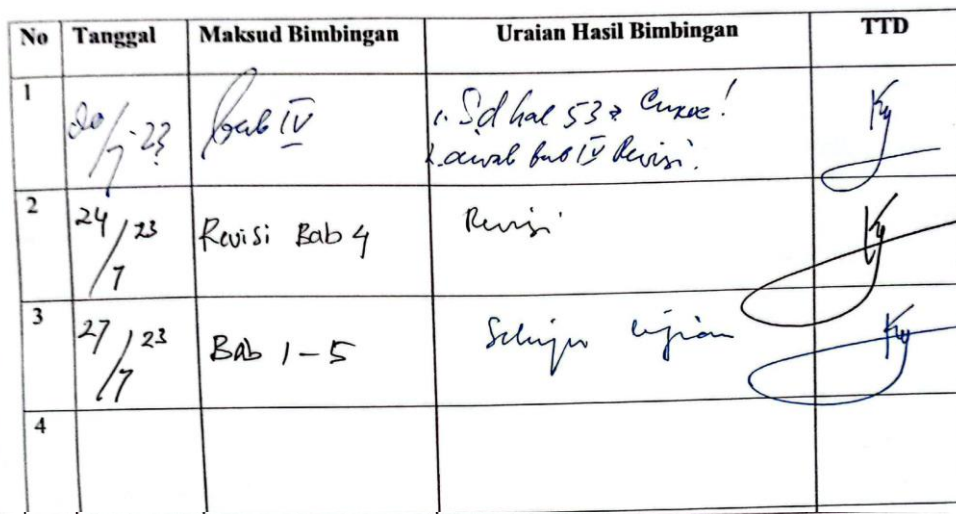 No Tanggal Maksud Bimbingan Uraian Hasil Bimbingan TTD
1 20/7-23 bab IV 1. Sd hal 53
2. awal bab IV Revisi.
2 24/7 23 Revisi Bab 4 Revisi
3 27/7 23 Bab 1-5 ujian
4